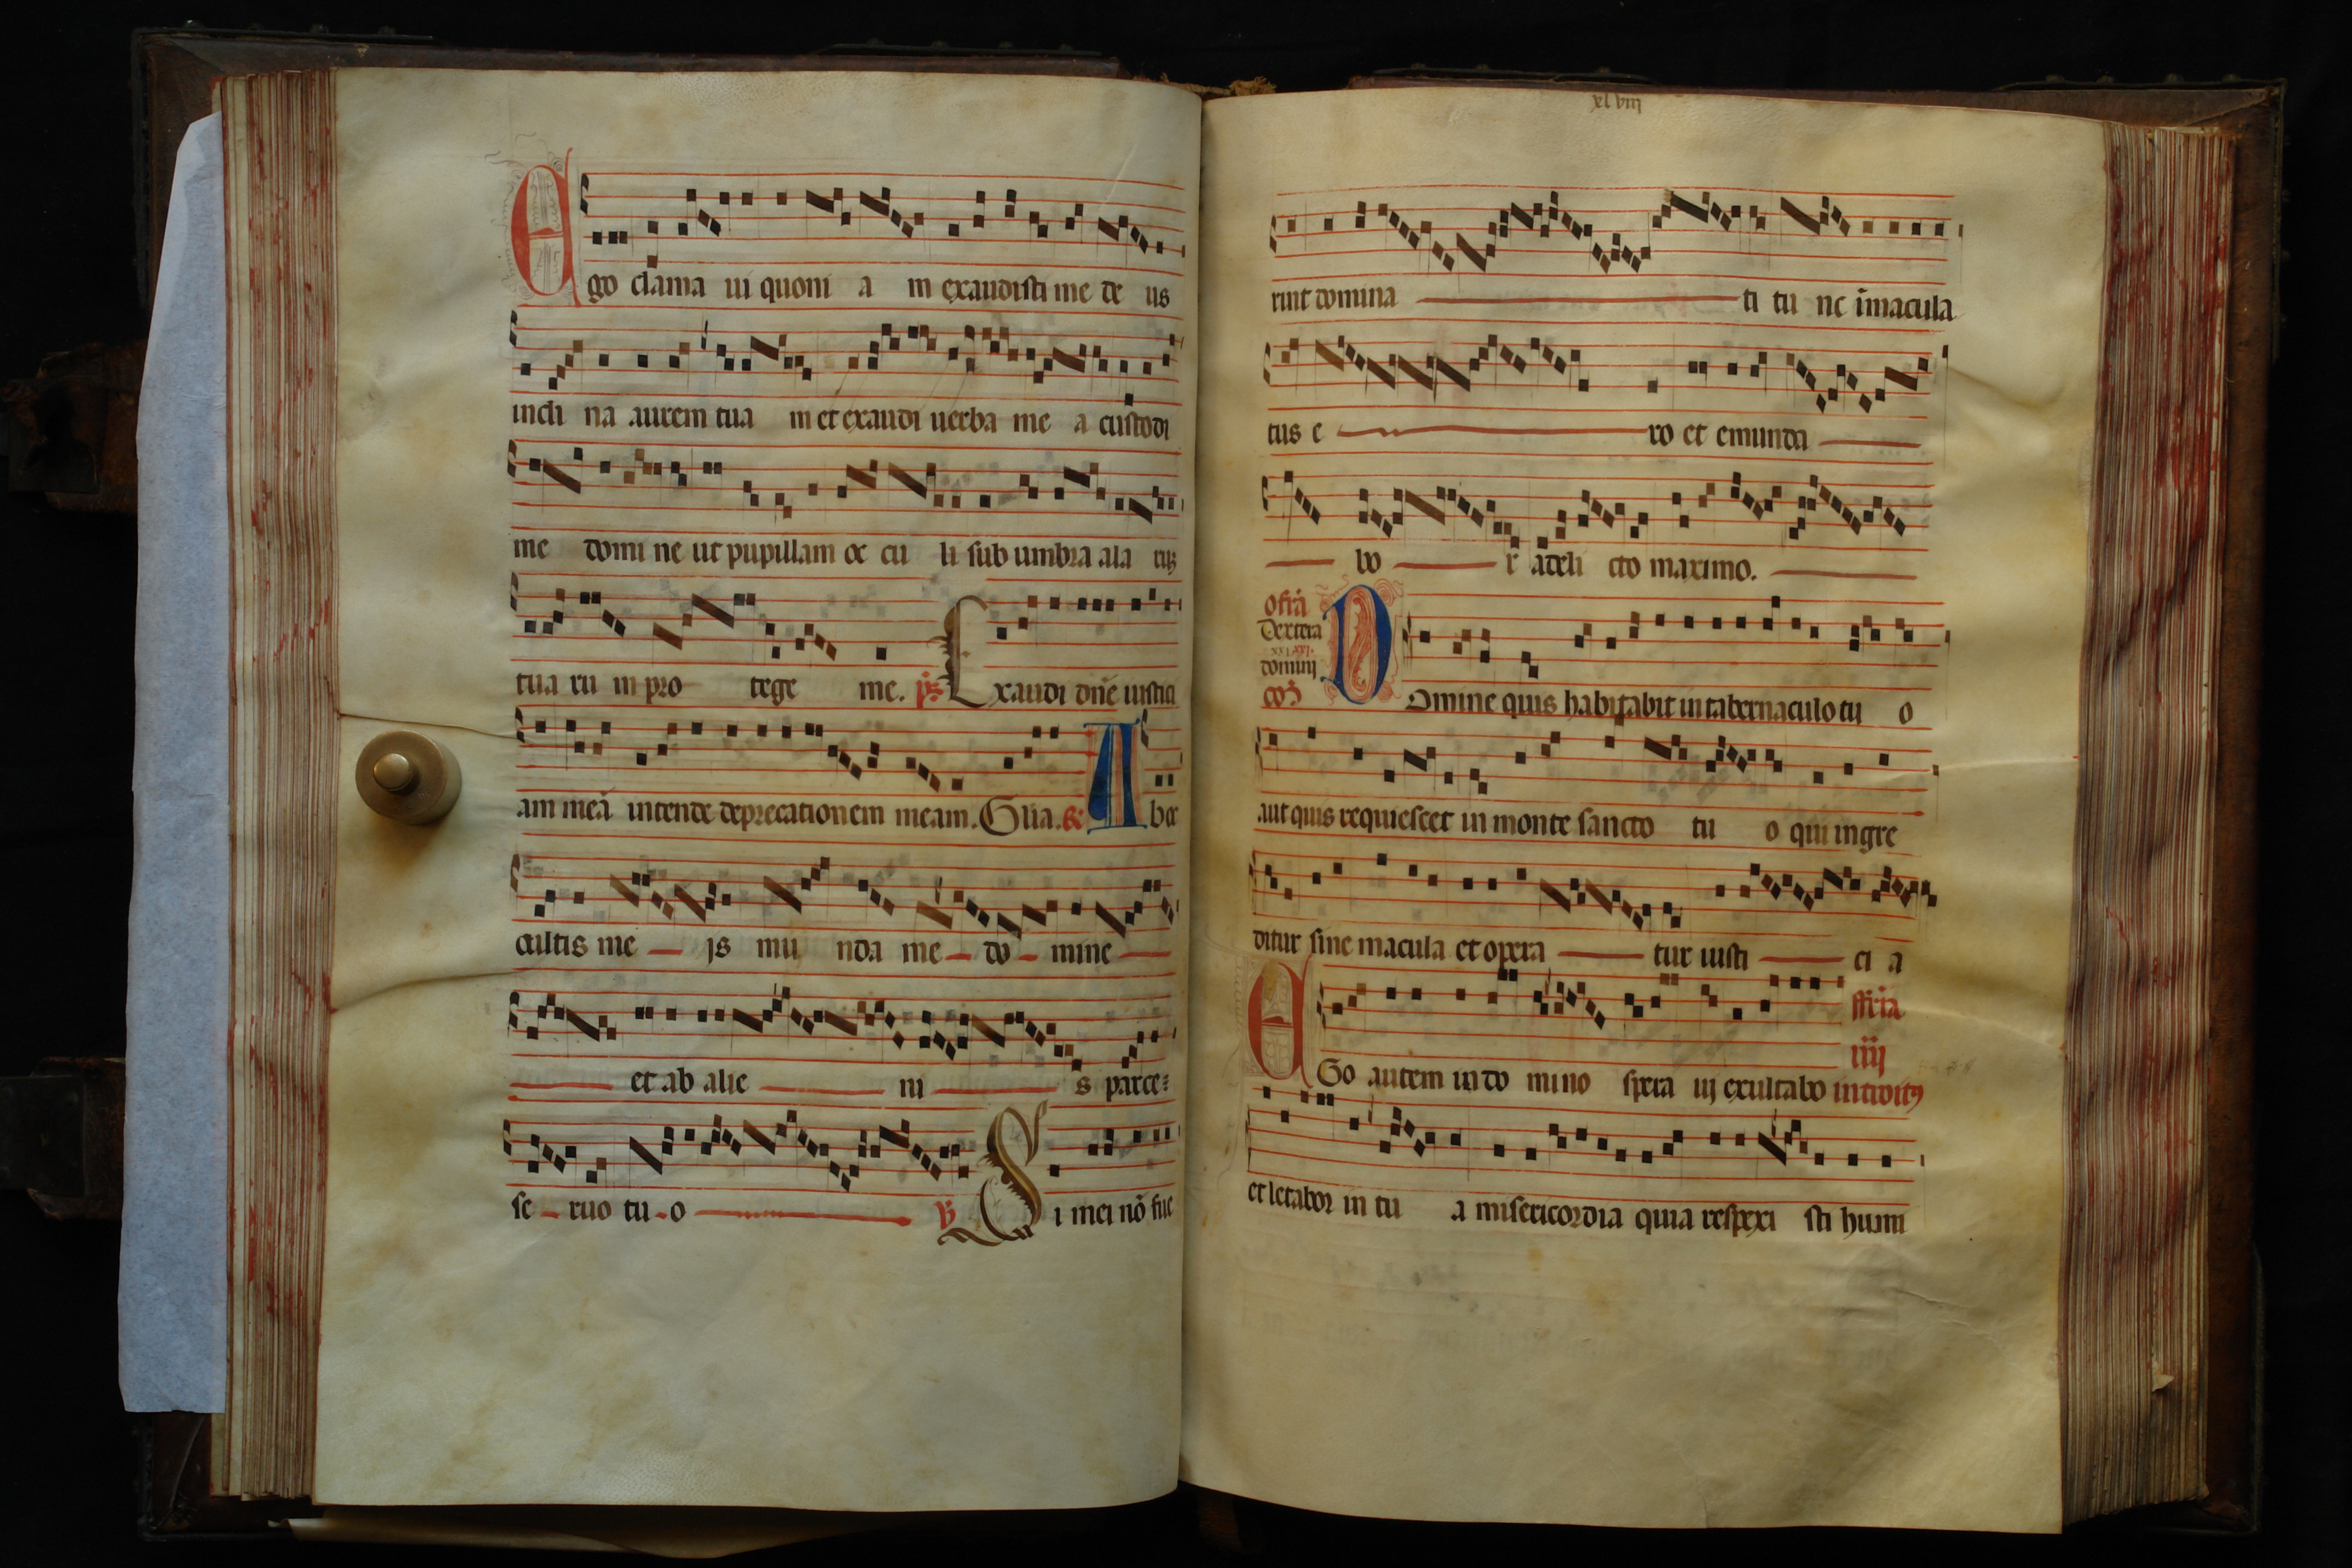 Ego clama ui quoni a m exaudisti me de us
incli na aurem tua m et exaudi uerba me a custodi
me domi ne ut pupillam oc cu li sub umbra ala rũ
tua ru m pro tege me. ps Exaudi dñe iustici
am meã intende deprecationem meam. Glia. Gr Aboc
cultis me is mu nda me do mine
et ab alie ni s parce
se ruo tu o V Si mei nõ fue
xlviij
rint domina ti tu nc ĩmacula
tus e ro et emunda
bo r adeli cto maximo.
ofrã
Dextera
domini
coɜ Domine quis habitabit in tabernaculo tu o
aut quis requiescet in monte sancto tu o qui ingre
ditur sine macula et opera tur iusti ci a
fferia
iiij
Ego autem in do mino spera ui exultabo introitus
et letabor in tu a misericordia quia respexi sti humi